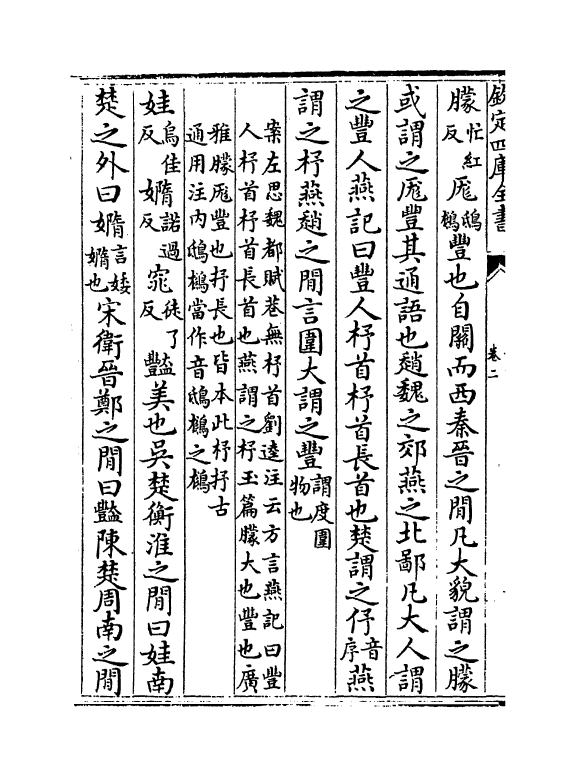 欽定四庫全書
卷二
朦忙紅反厖鴟鵂豐也自關而西秦晉之閒凡大貌謂之朦
或謂之厖豐其通語也趙魏之郊燕之北鄙凡大人謂
之豐人燕記曰豐人杼首杼首長首也楚謂之伃音序燕
謂之杼燕趙之閒言圍大謂之豐謂度圍物也
案左思魏都賦巷無杼首劉逵注云方言燕記曰豐
人杼首杼首長首也燕謂之杼玉篇朦大也豐也廣
雅朦厖豐也抒長也皆本此杼抒古
通用注內鴟鵂當作音鴟鵂之鵂
娃烏佳反嫷諾過反窕徒了反豔美也吳楚衡淮之閒曰娃南
楚之外曰嫷言婑嫷也宋衛晉鄭之閒曰豔陳楚周南之閒